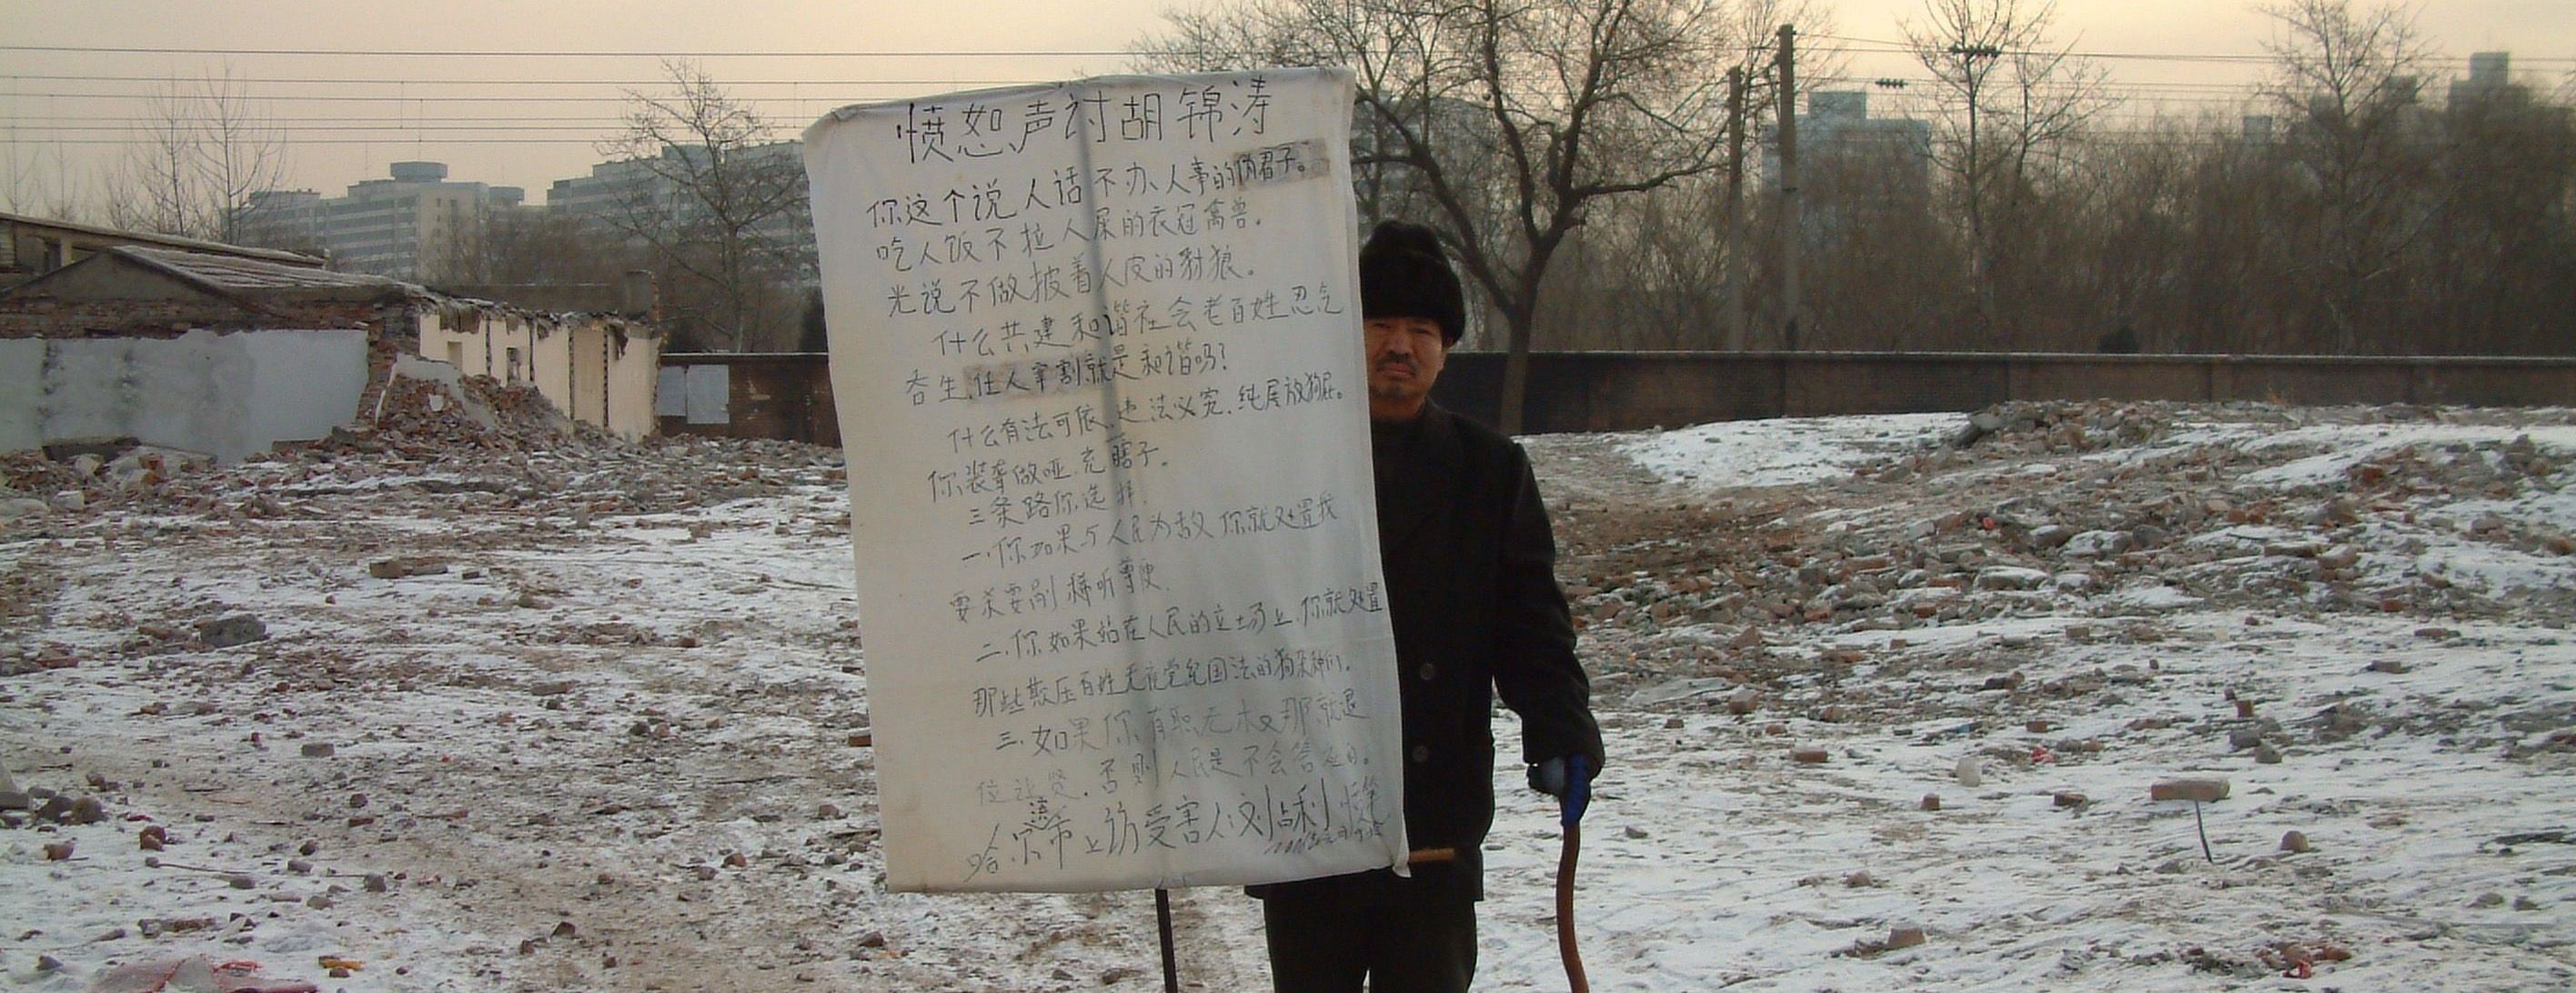 愤怒声讨胡锦涛
你这个说人话不办人事的伪君子。
吃人饭不拉人屎的衣冠禽兽。
光说不做披着人皮的豺狼。
什么共建和谐社会老百姓忍气
吞生.任人宰割就是和谐吗？
什么有法可依.违法必究.纯属放狗屁。
你装聋做哑.充瞎子。
三条路你选择.
一.你如果与人民为敌你就处置我
要杀要剐稀听尊便.
二.你如果站在人民的立场上.你就处置
那些欺压百姓无视党纪国法的狗杂种们.
三.如果你有职无权那就退
位让贤.否则人民是不会答应的。
哈尔滨市上访受害人:刘占利